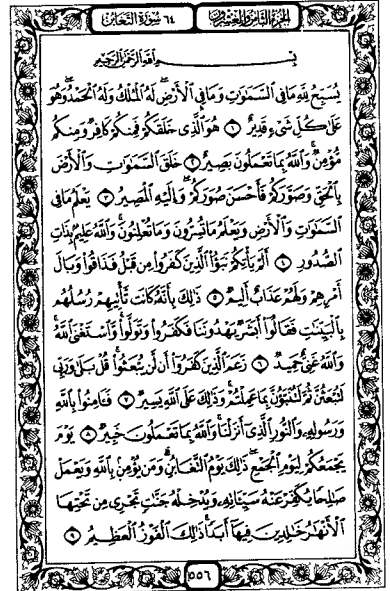 الجزء الثامن والعشرون
٦٤ سورة التغابن
بسم الله الرحمن الرحيم
يُسَبِّحُ لِلَّهِ مَا فِي السَّمَٰوَٰتِ وَمَا فِي الْأَرْضِ لَهُ الْمُلْكُ وَلَهُ الْحَمْدُ وَهُوَ
عَلَىٰ كُلِّ شَيْءٍ قَدِيرٌ ١ هُوَ الَّذِي خَلَقَكُمْ فَمِنكُمْ كَافِرٌ وَمِنكُم
مُّؤْمِنٌ وَاللَّهُ بِمَا تَعْمَلُونَ بَصِيرٌ ٢ خَلَقَ السَّمَٰوَٰتِ وَالْأَرْضَ
بِالْحَقِّ وَصَوَّرَكُمْ فَأَحْسَنَ صُوَرَكُمْ وَإِلَيْهِ الْمَصِيرُ ٣ يَعْلَمُ مَا فِي
السَّمَٰوَٰتِ وَالْأَرْضِ وَيَعْلَمُ مَا تُسِرُّونَ وَمَا تُعْلِنُونَ وَاللَّهُ عَلِيمٌ بِذَاتِ
الصُّدُورِ ٤ أَلَمْ يَأْتِكُمْ نَبَؤُا الَّذِينَ كَفَرُوا مِن قَبْلُ فَذَاقُوا وَبَالَ
أَمْرِهِمْ وَلَهُمْ عَذَابٌ أَلِيمٌ ٥ ذَٰلِكَ بِأَنَّهُ كَانَت تَّأْتِيهِمْ رُسُلُهُم
بِالْبَيِّنَٰتِ فَقَالُوا أَبَشَرٌ يَهْدُونَنَا فَكَفَرُوا وَتَوَلَّوا وَّاسْتَغْنَى اللَّهُ
وَاللَّهُ غَنِيٌّ حَمِيدٌ ٦ زَعَمَ الَّذِينَ كَفَرُوا أَن لَّن يُبْعَثُوا قُلْ بَلَىٰ وَرَبِّي
لَتُبْعَثُنَّ ثُمَّ لَتُنَبَّؤُنَّ بِمَا عَمِلْتُمْ وَذَٰلِكَ عَلَى اللَّهِ يَسِيرٌ ٧ فَـَٔامِنُوا بِاللَّهِ
وَرَسُولِهِ وَالنُّورِ الَّذِي أَنزَلْنَا وَاللَّهُ بِمَا تَعْمَلُونَ خَبِيرٌ ٨ يَوْمَ
يَجْمَعُكُمْ لِيَوْمِ الْجَمْعِ ذَٰلِكَ يَوْمُ التَّغَابُنِ وَمَن يُؤْمِن بِاللَّهِ وَيَعْمَلْ
صَٰلِحًا يُكَفِّرْ عَنْهُ سَيِّـَٔاتِهِ وَيُدْخِلْهُ جَنَّٰتٍ تَجْرِي مِن تَحْتِهَا
الْأَنْهَٰرُ خَٰلِدِينَ فِيهَا أَبَدًا ذَٰلِكَ الْفَوْزُ الْعَظِيمُ ٩
٥٥٦